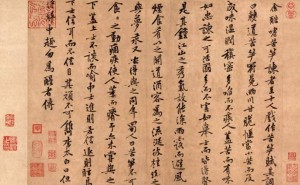 余酷嗜苦笋諫者至十人戲作苦笋賦其詞
曰僰道苦笋冠冕兩川甘脆愜當小苦而反
成味溫潤縝密多啗而不疾人蓋苦而有味
如忠諫之可活國多而不害如舉士而皆得賢
是其鍾江山之秀氣故能深雨露而避風煙
食肴以之開道酒客為之流涎彼桂斑之
與夢汞又安得與之同年蜀人曰苦笋不可
食食之動痼疾使人萎而瘠予亦未嘗與之
下蓋上士不談而喻中士進則若信退則眩焉
下士信耳而不信目其頑不可鐫李太白曰但
得醉中趣勿為醒者傳